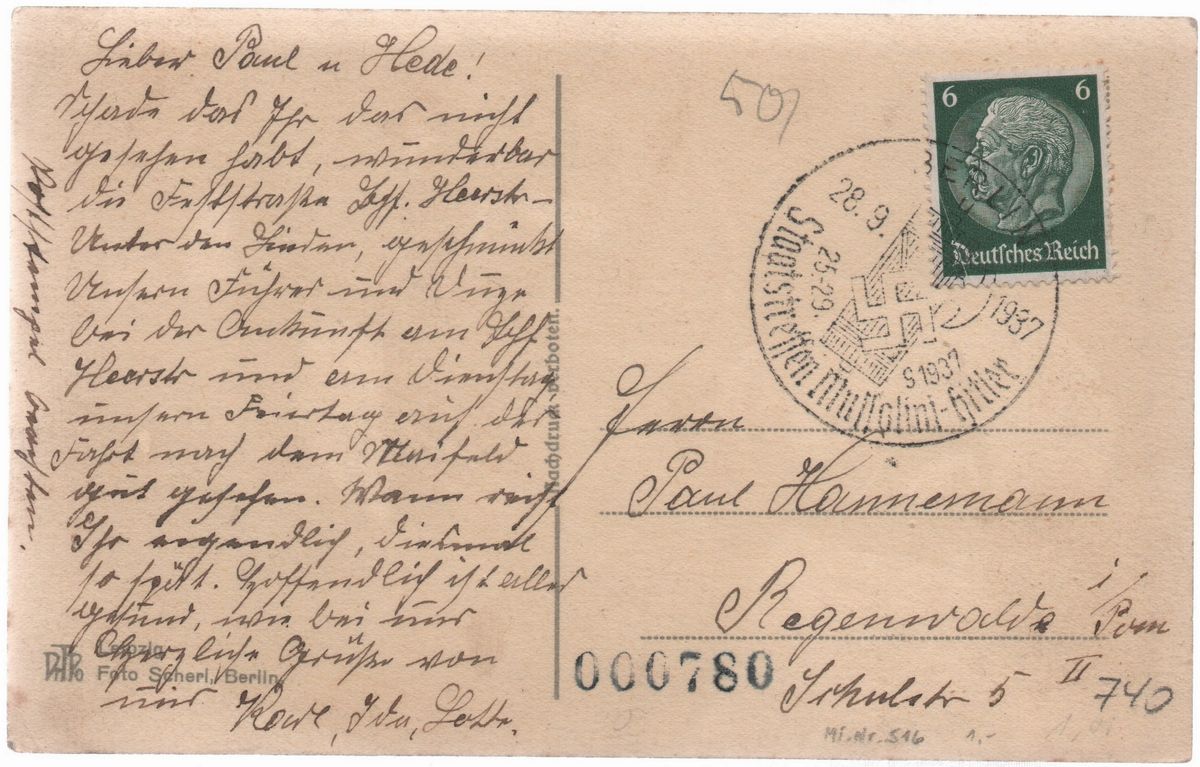 Lieber Paul u Hede!
Schade das Ihr das nicht
gesehen habt, wunderbar
die Feststraße Bhf. Heerstr-
Unter den Linden, geschmückt
Unsern Führer und Duze
bei der Ankunft am Bhf
Heerstr und am Dienstag
unsern Feiertag auf der
Fahrt nach dem Maifeld
gut gesehen. Wann reist
Ihr eigendlich, diesmal
so spät. Hoffendlich ist alles
gesund, wie bei uns
Herzliche Grüße von
uns Karl, Ida, Lotte.
Poststempel beachten.
Leipzig
Foto Scherl, Berlin
Nachdruck verboten.
50
6 6
Deutsches Reich
BERLIN
28.9.
1937
25-29.
9 1937
Staatstreffen Mussolini-Hitler
Herrn
Paul Hannemann
Regenwalde i/Pom
Schulstr 5 II
000780
740
Mi.Nr. 516 1,-